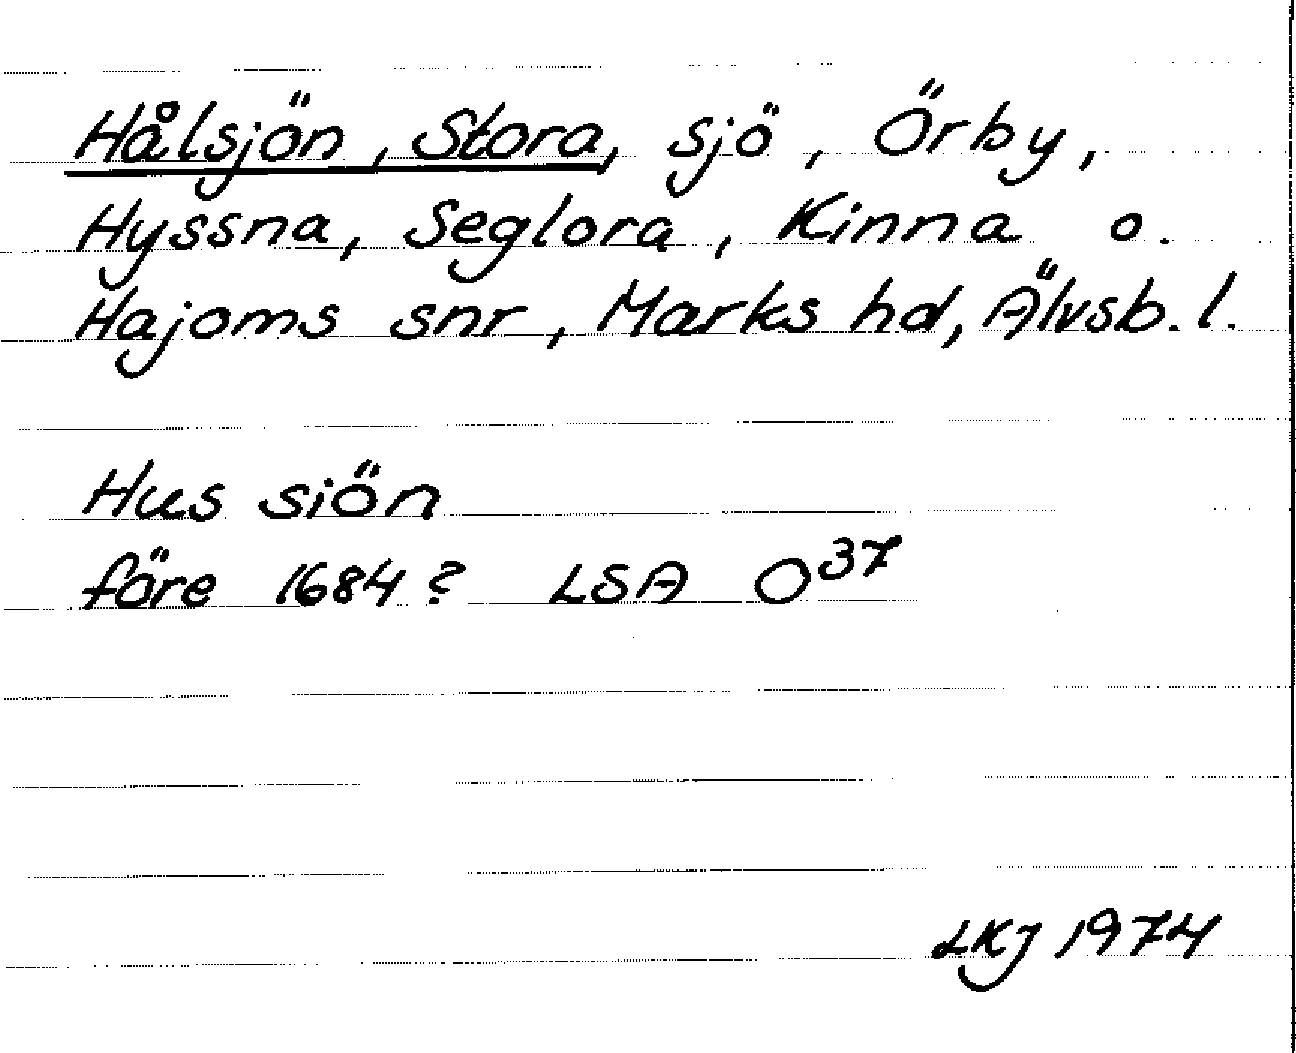 Hålsjön, Stora, sjö, Örby,
Hyssna, Seglora, Kinna o.
Hajoms snr, Marks hd, Älvsb. l.
Hus siön
före 1684? LSA O³⁷
LKJ 1974